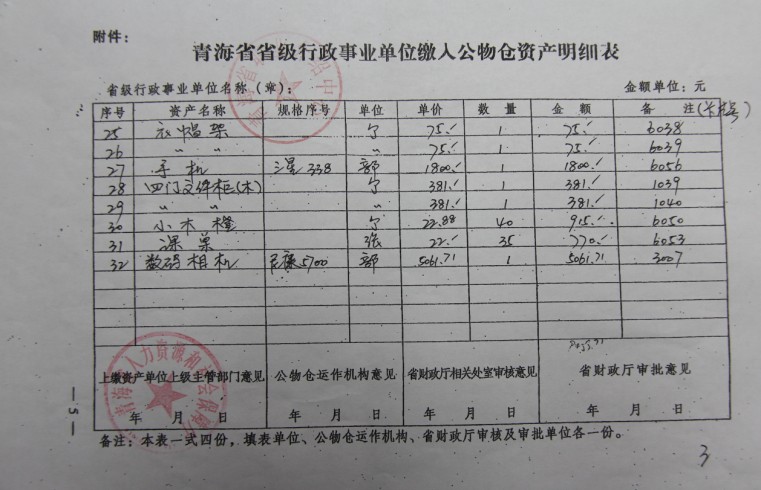 附件：
青海省省级行政事业单位缴入公物仓资产明细表
省级行政事业单位名称（章）： 金额单位：元
序号 资产名称 规格序号 单位 单价 数量 金额 备注(卡片号)
25 衣帽架 个 75.- 1 75.- 6038
26 〃 〃 〃 75.- 1 75.- 6039
27 手机 三星338 部 1800.- 1 1800.- 6056
28 四门文件柜(木) 个 381.- 1 381.- 1039
29 〃 〃 〃 381.- 1 381.- 1040
30 小木橙 个 22.88 40 915.- 6050
31 课桌 张 22.- 35 770.- 6053
32 数码相机 尼康5700 部 5061.71 1 5061.71 3007
上缴资产单位上级主管部门意见 公物仓运作机构意见 省财政厅相关处室审核意见 省财政厅审批意见
年 月 日 年 月 日 年 月 日 年 月 日
备注：本表一式四份，填表单位、公物仓运作机构、省财政厅审核及审批单位各一份。
— 5 —
3